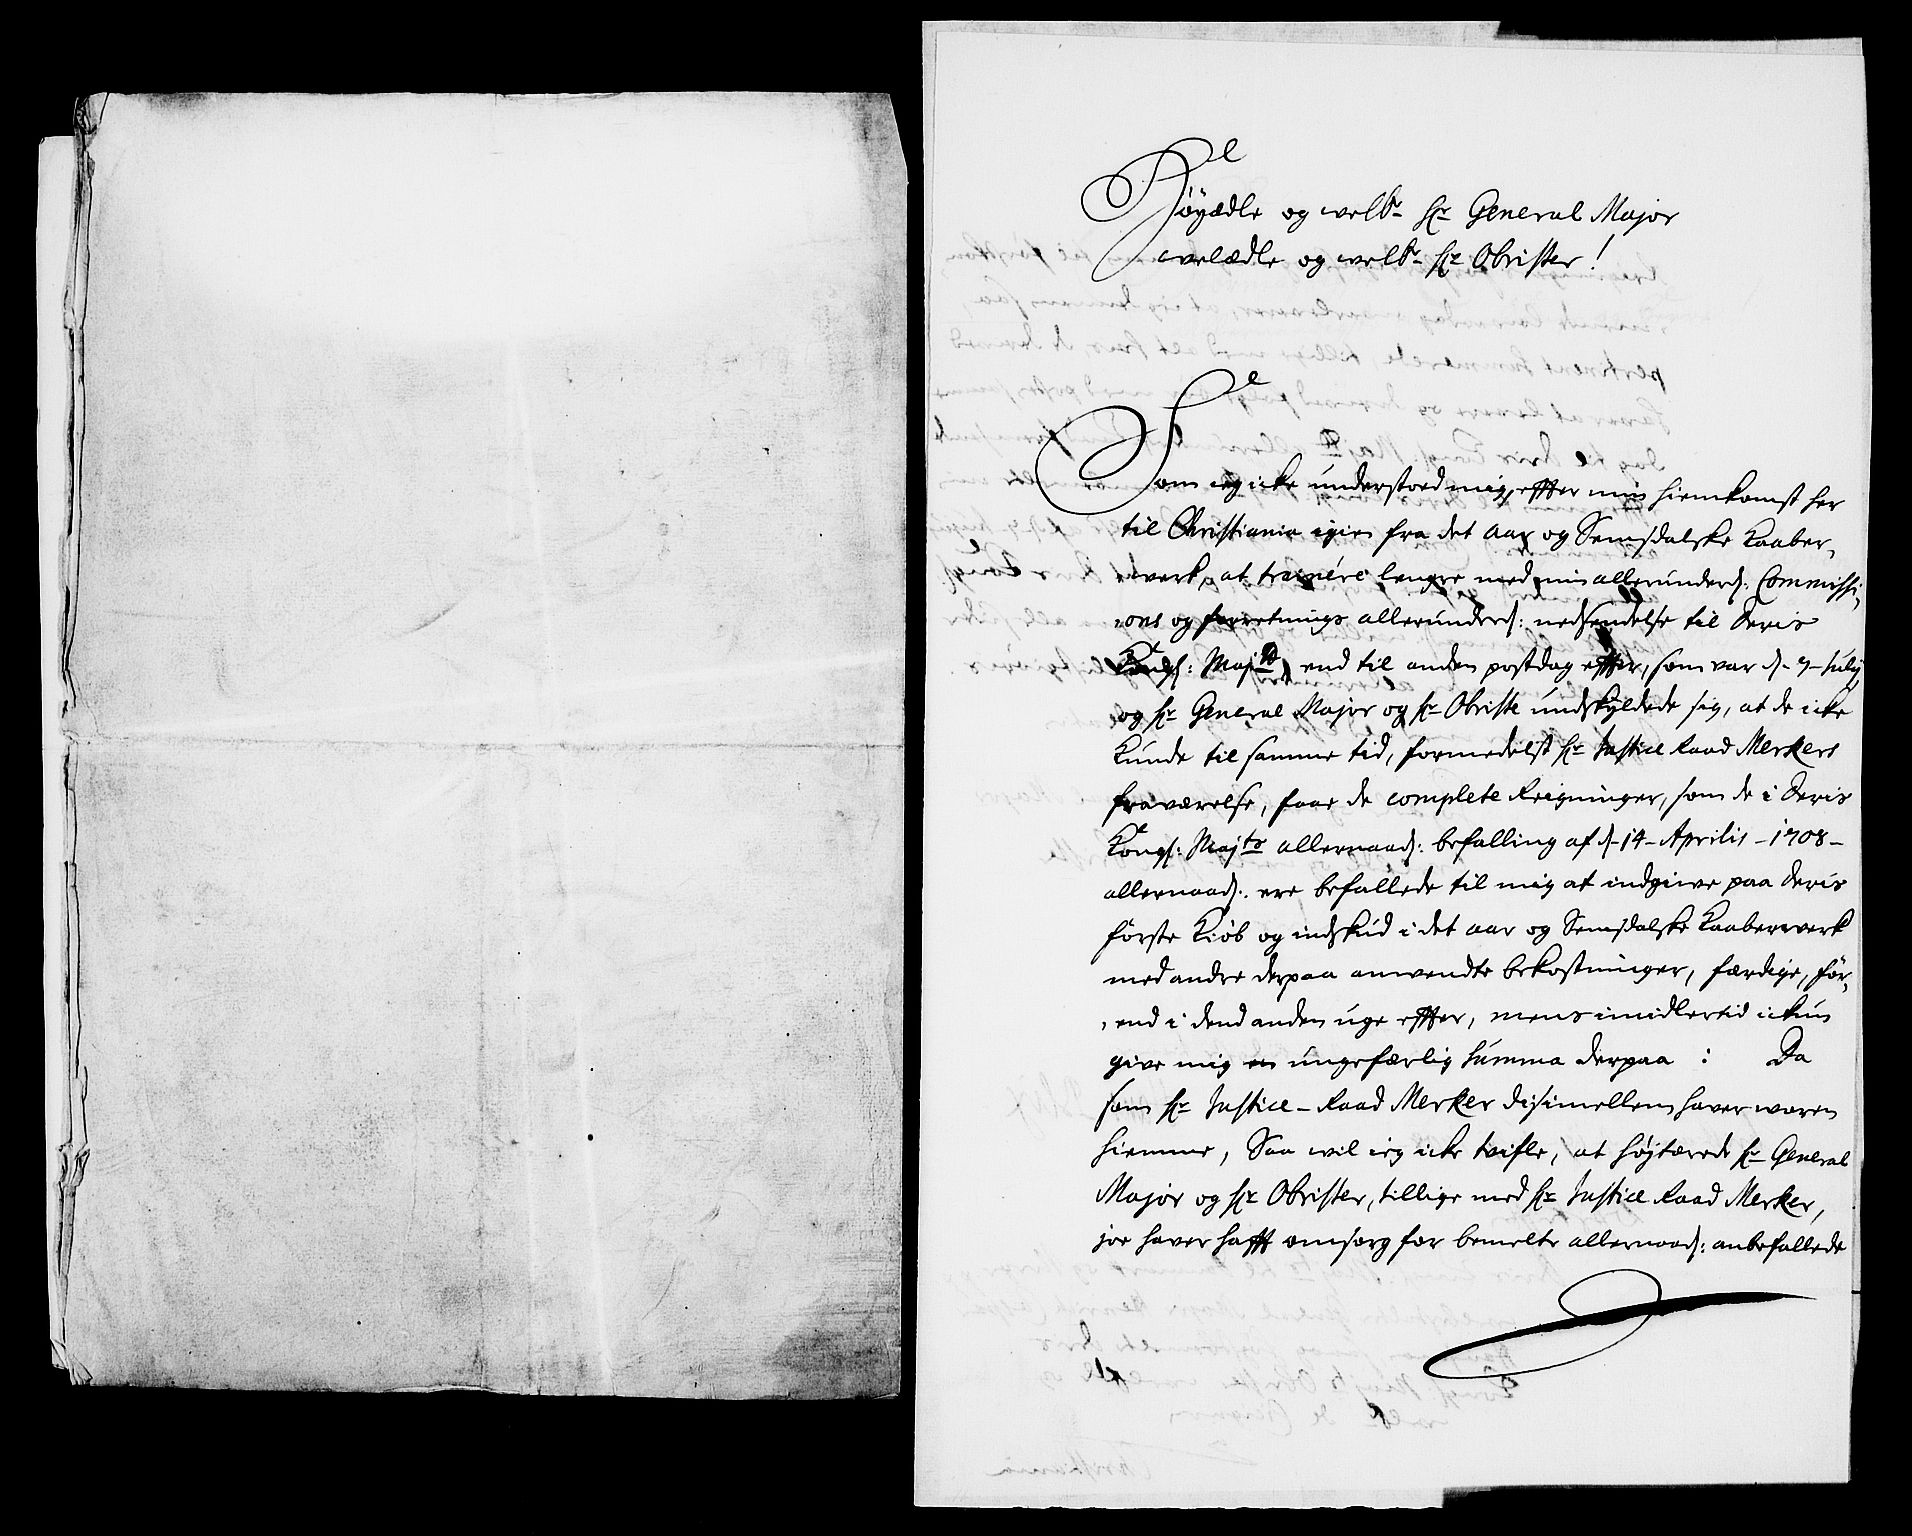 Höyædle og welbr Hr General Major
welædle og welbr Hr Obrister!
Som ieg icke understoed mig, effter min hiemkomst her
til Christiania igien fra det Aar og Semsdalske Kaaber-
werk, at trainére lengre med min allerunderd: Commissi-
ons og forretnings allerunderd: nedsendelse til Deris
Kongl: Majts, end til anden postdag effter, som var d. 7 July
og Hr General Major og Hr Obriste undskyldede sig, at de icke
kunde til samme tid, formedelst Hr Justice Raad Merkers
fraværelse, faae de complete Reigninger, som de i Deris
Kongl: Majts allernaad: befalling af d. 14 Aprilis 1708
allernaad: ere befallede til mig at indgive paa Deris
förste Kiöb og indskud i det Aar og Semsdalske Kaaberwerk
med andre derpaa anvendte bekostninger, færdige, för-
end i dend anden uge effter, mens imidlertid ickun
give mig en ungefærlig Summa derpaa : Da
som Hr Justice-Raad Merker disimellem haver waren
hiemme, Saa wil ieg icke tvifle, at höjtærede Hr General
Major og Hr Obrister, tillige med Hr Justice Raad Merker,
joe haver hafft omsorg for bemelte allernaad: anbefallede